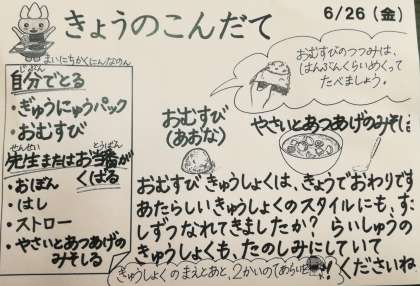 きょうのこんだて
6/26(金)
まいにちかくにんなのん
じぶん
自分でとる
・ぎゅうにゅうパック
・おむすび
せんせい
とうばん
先生またはお当番が
くばる
・おぼん
・はし
・ストロー
・やさいとあつあげの
みそしる
おむすびのつつみは、
はんぶんくらいめくって
たべましょう。
おむすび
(あおな)
やさいとあつあげのみそし
おむすび きゅうしょくは、きょうでおわりです
あたらしい きゅうしょくのスタイルにも、す
しずつなれてきましたか? らいしゅうの
きゅうしょくも、たのしみにしていて
くださいね
きゅうしょくの まえとあと、2かいの てあらいを
!